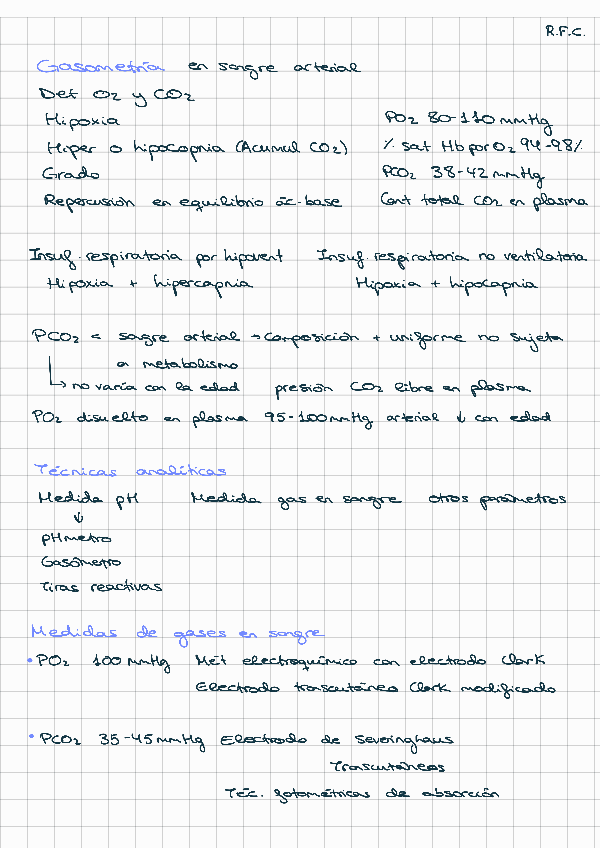 R.F.C.
Gasometría en sangre arterial
Det O₂ y CO₂
Hipoxia PO₂ 80-110 mmHg
Hiper o hipocapnia (Acumul CO₂) % sat Hb por O₂ 94-98%
Grado PCO₂ 38-42 mmHg
Repercusión en equilibrio ác-base Cont total CO₂ en plasma
Insuf. respiratoria por hipovent Insuf. respiratoria no ventilatoria
Hipoxia + hipercapnia Hipoxia + hipocapnia
PCO₂ < sangre arterial → composición + uniforme no sujeta
a metabolismo
↳ no varía con la edad presión CO₂ libre en plasma
PO₂ disuelto en plasma 95-100 mmHg arterial ↓ con edad
Técnicas analíticas
Medida pH Medida gas en sangre otros parámetros
↓
pHmetro
Gasómetro
Tiras reactivas
Medidas de gases en sangre
• PO₂ 100 mmHg Mét electroquímico con electrodo Clark
Electrodo transcutáneo Clark modificado
• PCO₂ 35-45 mmHg Electrodo de Severinghaus
Transcutáneos
Téc. fotométricas de absorción